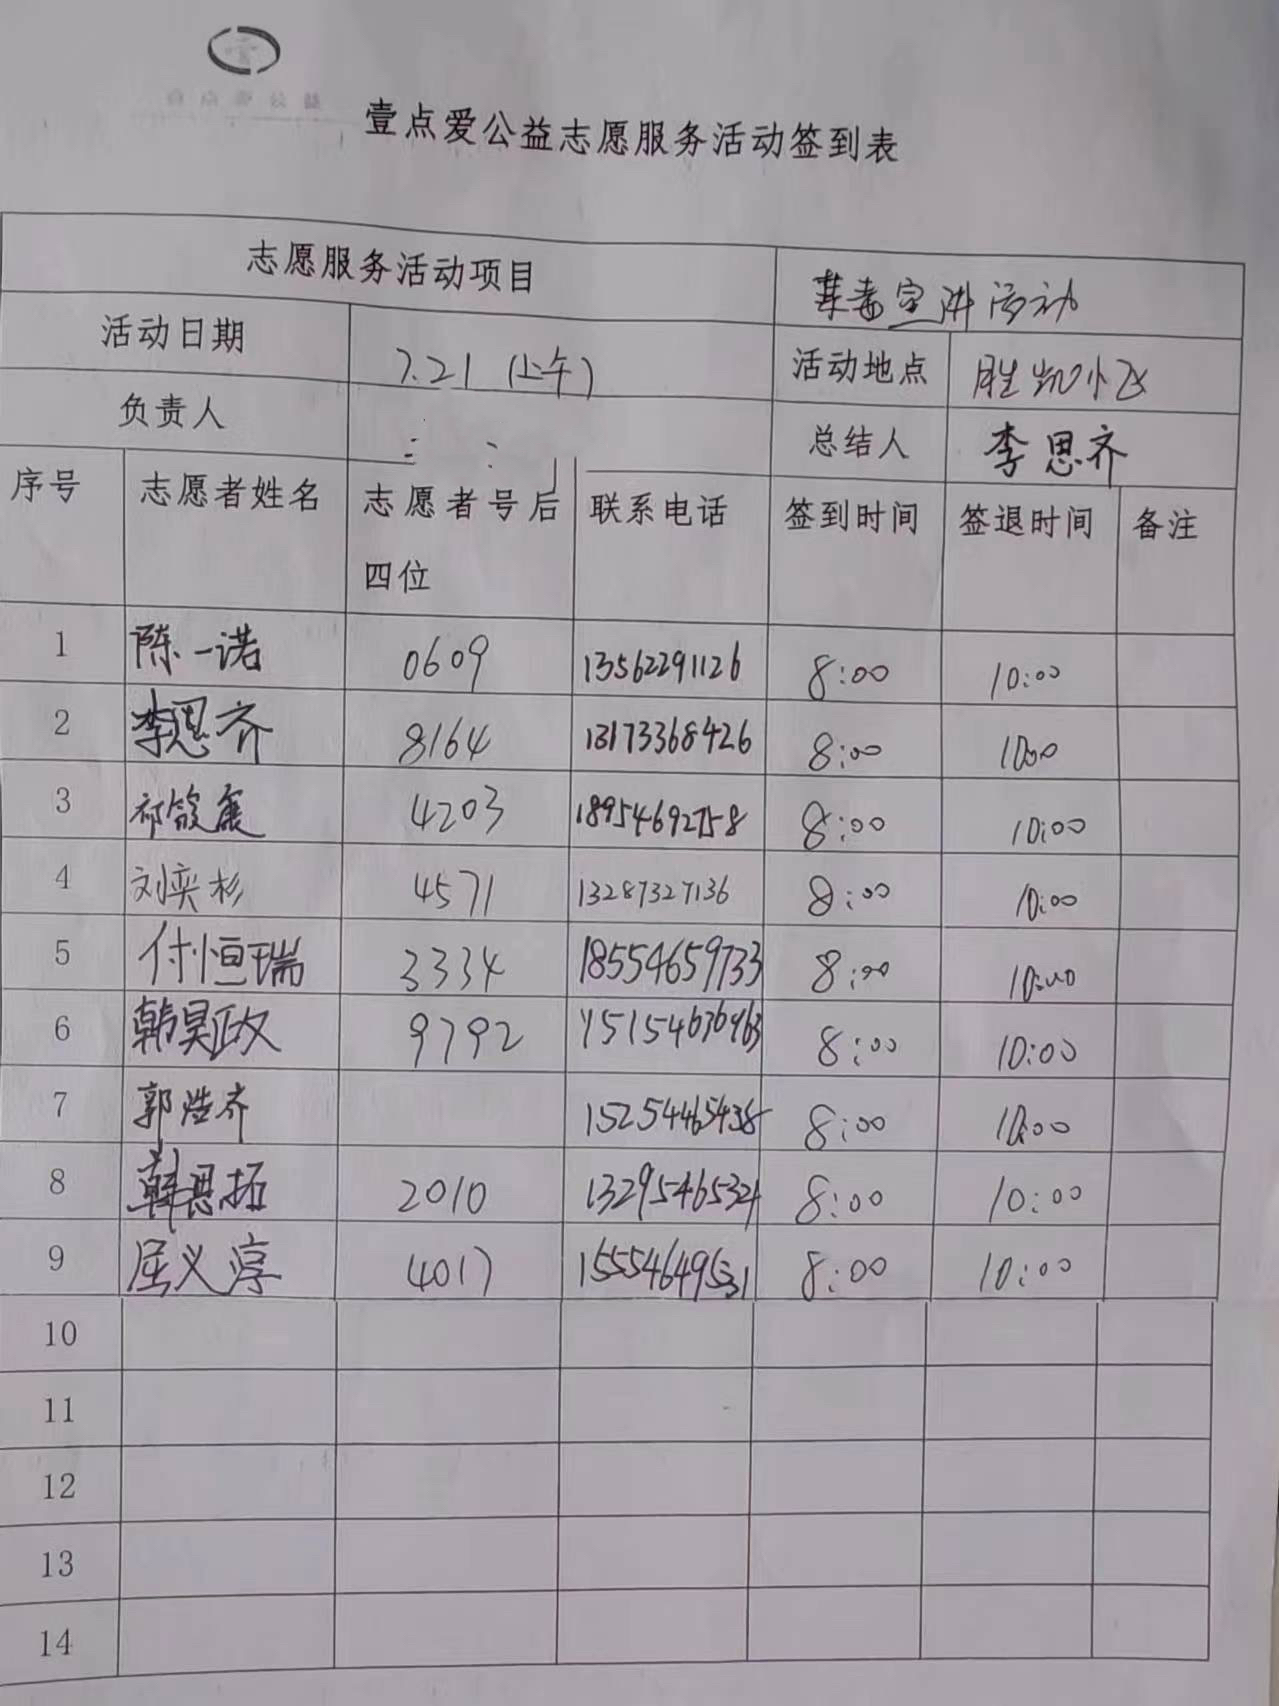 壹点爱公益志愿服务活动签到表
志愿服务活动项目 禁毒宣讲活动
活动日期 7.21 (上午) 活动地点 胜凯小区
负责人 总结人 李思齐
序号 志愿者姓名 志愿者号后四位 联系电话 签到时间 签退时间 备注
1 陈一诺 0609 13562291126 8:00 10:00
2 李思齐 8164 13173368426 8:00 10:00
3 4203 18954692758 8:00 10:00
4 刘奕杉 4571 13287327136 8:00 10:00
5 付恒瑞 3334 18554659733 8:00 10:00
6 韩昊政 9792 8:00 10:00
7 郭浩齐 15254465438 8:00 10:00
8 韩思拓 2010 8:00 10:00
9 屈义淳 4017 8:00 10:00
10
11
12
13
14